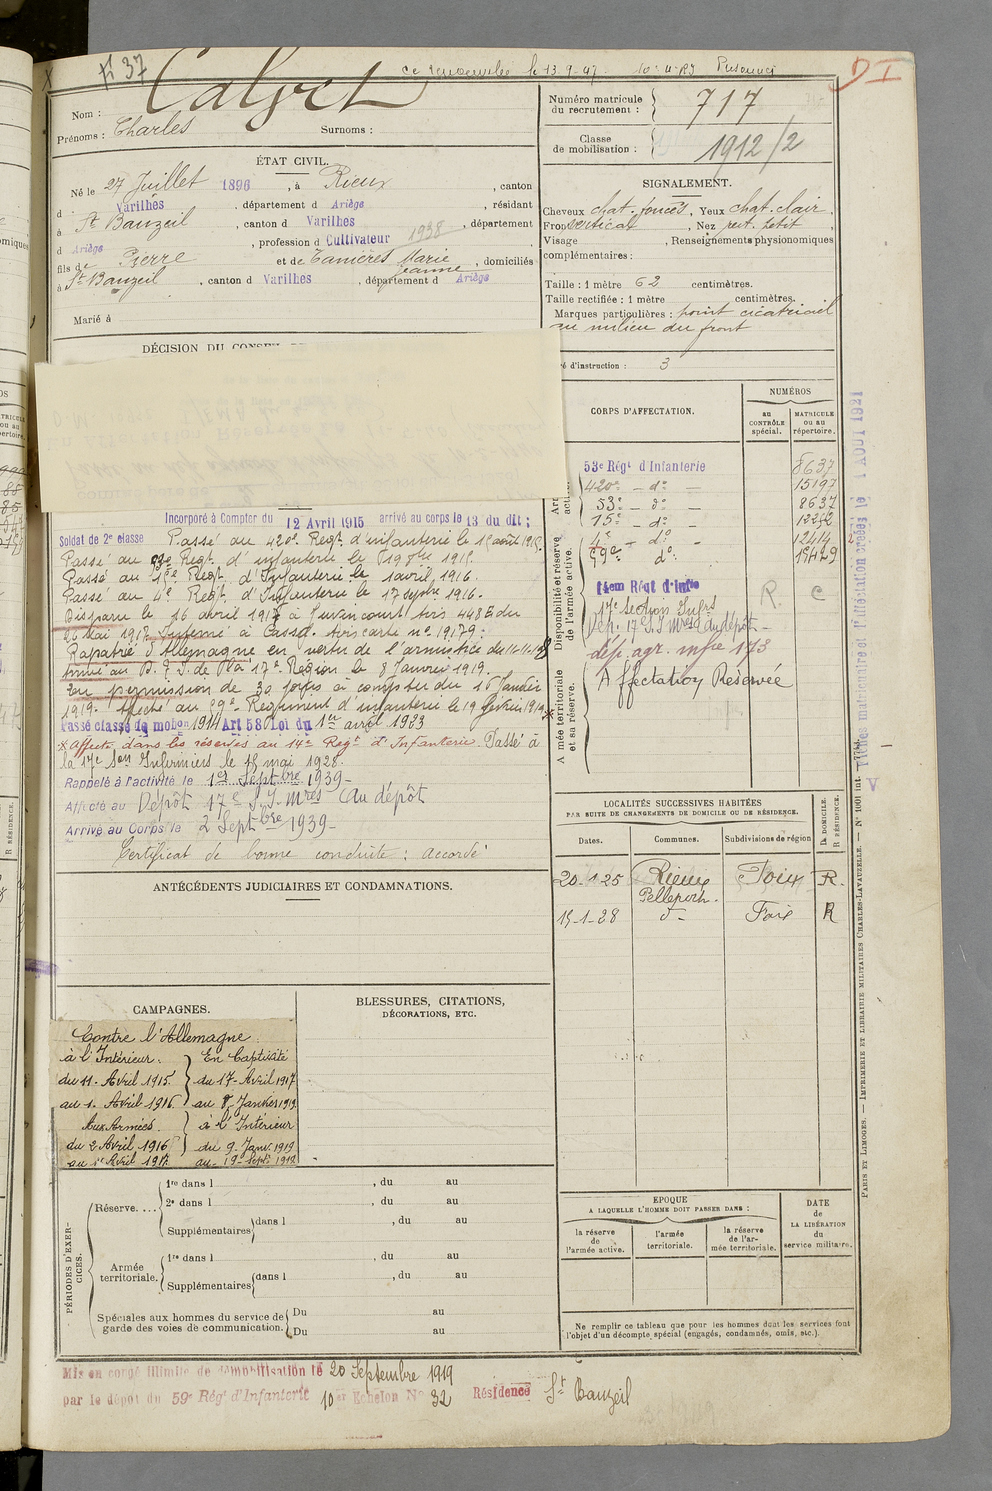 N° 37
Calvet
Nom :
Prénoms : Charles Surnoms :
Numéro matricule du recrutement : 717
Classe de mobilisation : 1912/2
D I
ÉTAT CIVIL.
Né le 27 Juillet 1896, à Rieux, canton
d Varilhès, département d Ariège, résidant
à St Bauzeil, canton d Varilhes, département
d Ariège, profession d Cultivateur 1938
fils de Pierre et de Tanières Marie Jeanne, domiciliés
à St Bauzeil, canton d Varilhes, département d Ariège
Marié à
SIGNALEMENT.
Cheveux chat. foncés, Yeux chat. clair,
Front vertical, Nez rect. petit,
Visage , Renseignements physionomiques
complémentaires :
Taille : 1 mètre 62 centimètres.
Taille rectifiée : 1 mètre centimètres.
Marques particulières : point cicatriciel
au milieu du front
DÉCISION DU CONSEIL
é d'instruction : 3
CORPS D'AFFECTATION.
NUMÉROS
au CONTRÔLE spécial.
MATRICULE ou au répertoire.
53e Régt d'Infanterie 8637
420e - do - 15197
53e - do - 8637
15e - do -
4e - do - 12414
59e do.
14em Régt d'Infie
17e Section Infrs
Dép. 17 S.I Mres au dépôt -
Affectation Réservée
R. C
Disponibilité et réserve de l'armée active.
Armée territoriale et sa réserve.
Incorporé à Compter du 12 Avril 1915 arrivé au corps le 13 du dit ;
Soldat de 2e classe Passé au 420e. Regt. d'infanterie le 1er août 1915.
Passé au 53e Regt. d'infanterie le 19 9bre 1915.
Passé au 15e Regt. d'Infanterie le 1 avril 1916.
Passé au 4e Regt. d'Infanterie le 17 7bre 1916.
Disparu le 16 avril 1917 à Juvincourt Avis 448 E du
26 Mai 1917. Interné à Cassel. Avis carte no. 19179 :
Rapatrié d'Allemagne en vertu de l'armistice du 11-11-18
arrivé au D. I. de Foix 17e Région le 8 Janvier 1919.
En permission de 30 jours à compter du 10 Janvier
1919. Affecté au 59e. Régiment d'infanterie le 19 février 1919
Passé classe de mobon 1914 Art 58 Loi du 1er avril 1923
x Affecté dans les réserves au 14e Regt d'Infanterie. Passé à
la 17e Son Infirmiers le 15 mai 1928.
Rappelé à l'activité le 1er Septbre 1939-
Affecté au Dépôt 17e S.I. Mres (au dépôt
Arrivé au Corps le 2 Septbre 1939-
Certificat de bonne conduite : accordé
ANTÉCÉDENTS JUDICIAIRES ET CONDAMNATIONS.
LOCALITÉS SUCCESSIVES HABITÉES
PAR SUITE DE CHANGEMENTS DE DOMICILE OU DE RÉSIDENCE.
Dates. Communes. Subdivisions de région
D. DOMICILE. R. RÉSIDENCE.
20-1-25 Rieux Pelleport. Foix R.
15-1-28 d- Foix R
CAMPAGNES.
Contre l'Allemagne.
à l'Intérieur :
du 11. Avril 1915.
au 1. Avril 1916.
Aux Armées.
du 2 Avril 1916
au 16 Avril 1917.
En Captivité
du 17- Avril 1917
au 8- Janvier 1919.
à l'Intérieur
du 9. Janv. 1919
au 19 Sept. 1919
BLESSURES, CITATIONS,
DÉCORATIONS, ETC.
PÉRIODES D'EXERCICES.
Réserve....
1re dans l , du au
2e dans l , du au
Supplémentaires dans l , du au
Armée territoriale.
1re dans l , du au
Supplémentaires dans l , du au
Spéciales aux hommes du service de garde des voies de communication.
Du au
Du au
EPOQUE
A LAQUELLE L'HOMME DOIT PASSER DANS :
la réserve de l'armée active.
l'armée territoriale.
la réserve de l'armée territoriale.
DATE de LA LIBÉRATION du service militaire.
Ne remplir ce tableau que pour les hommes dont les services font
l'objet d'un décompte spécial (engagés, condamnés, omis, etc.).
PARIS ET LIMOGES. — IMPRIMERIE ET LIBRAIRIE MILITAIRES CHARLES-LAVAUZELLE. — N° 1001 int.
Fiches matriculaire et d'affectation créées le 1 AOUT 1921
Mis en congé illimité de démobilisation le 20 Septembre 1919
par le dépôt du 59e Régt d'Infanterie 10er Echelon No 32 Résidence St Bauzeil